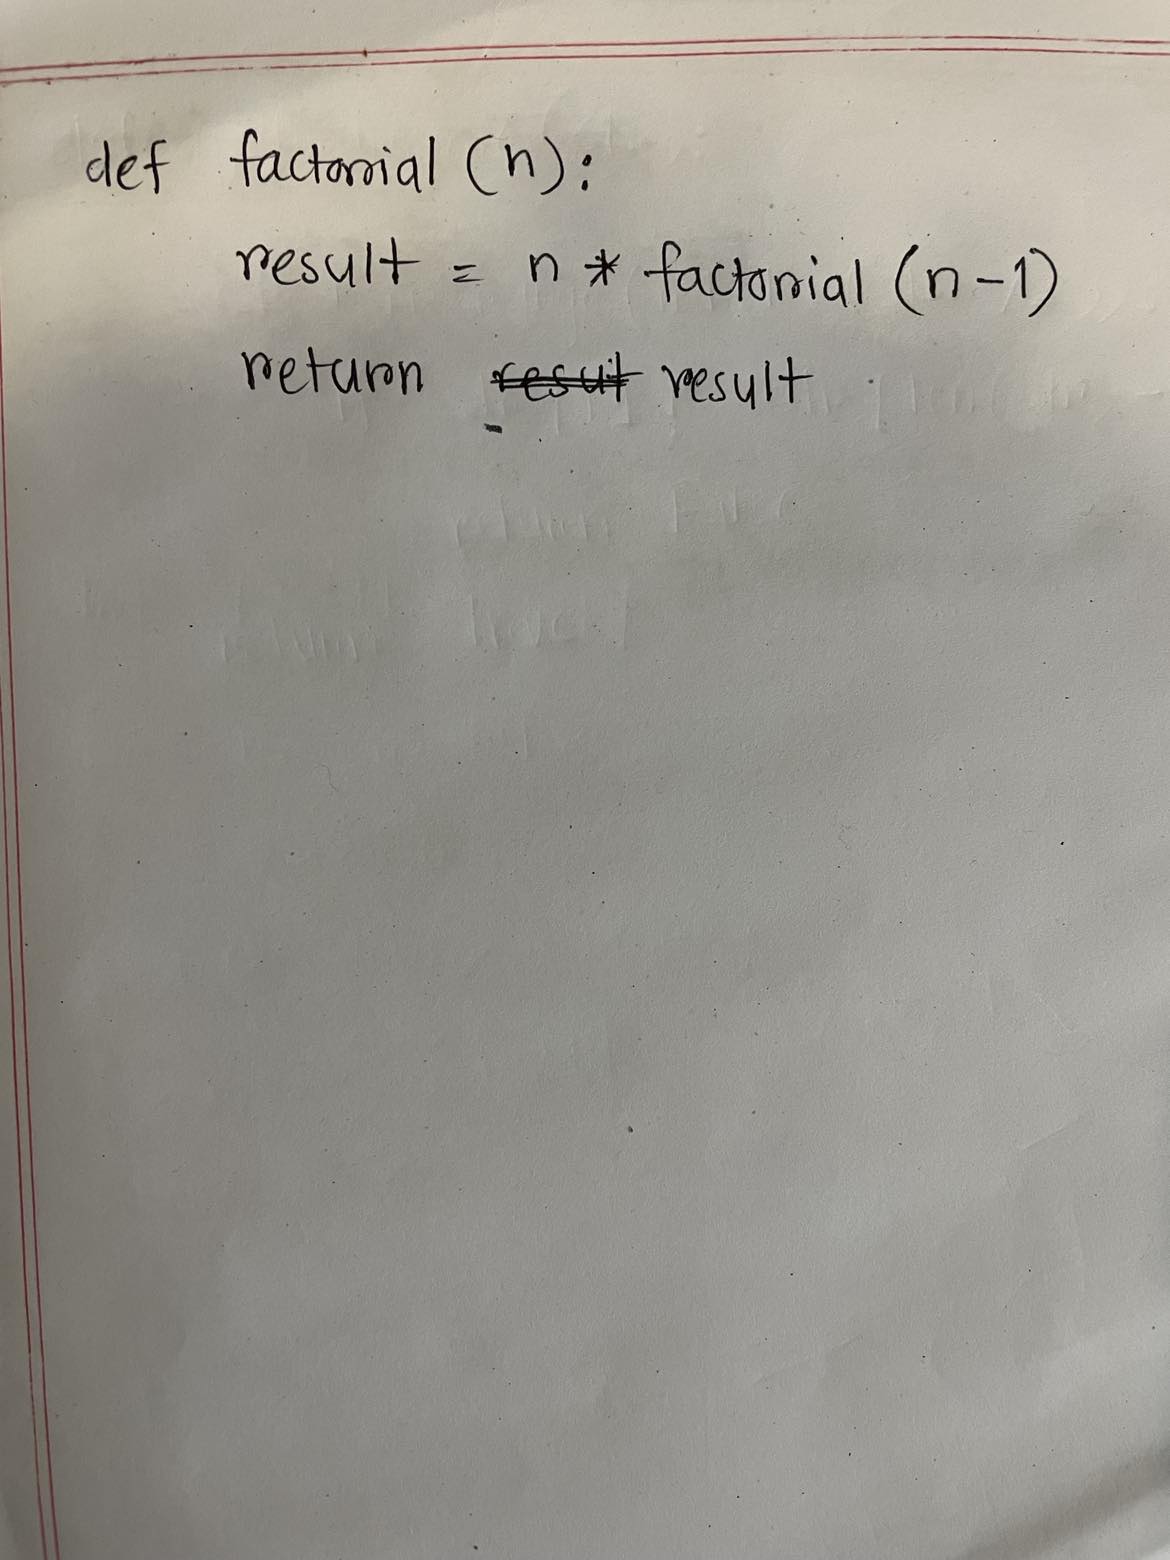 def factorial (n):
result = n * factorial (n-1)
return result